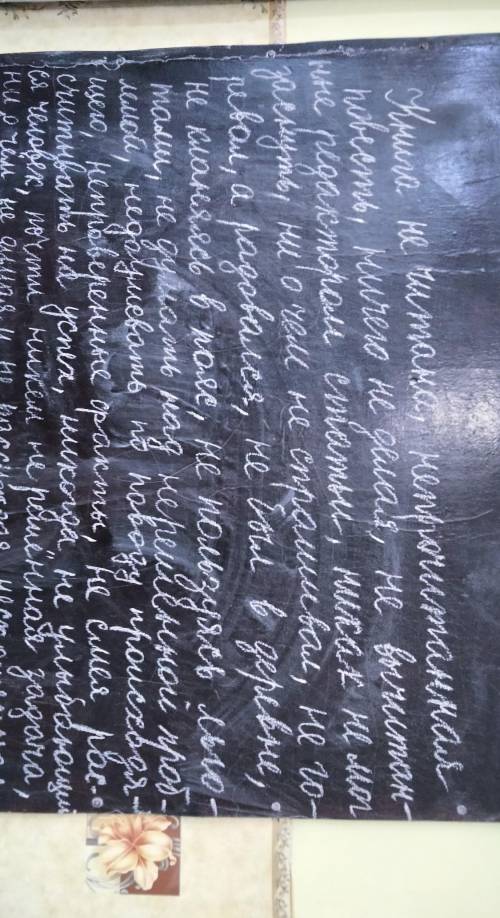 Книга не читана, непрочитанная
повесть, ничего не делая, не вычитан-
ные редактором статьи, никак не мог
заснуть, ни о чем не спрашивал, не го-
ревал, а радовался, не был в деревне,
не кланяясь в пояс, не пользуясь льго-
тами, не думать над нерешенной проб-
лемой, недоумевать по поводу происходя-
щего, непроверенные факты, не смея рас-
считывать на успех, никогда не улыбающий-
ся человек, почти никем не решённая задача,
ни о чем не думая и не